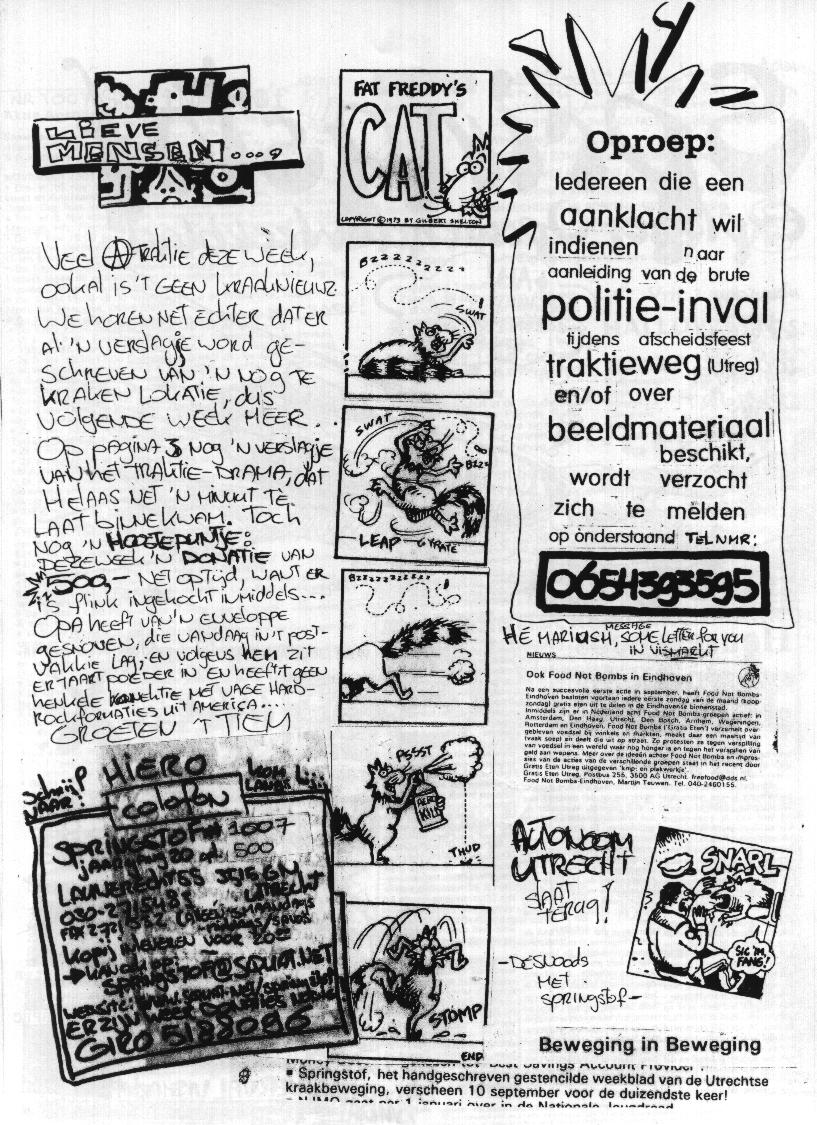 LiEVE
MENSEN....,
VEEL ATRAKTIE DEZE WEEK,
OOKAL IS 'T GEEN KRAAKNIEUWZ
WE HOREN NET ECHTER DAT ER
AL 'N VERSLAGJE WORD GE-
SCHREVEN VAN 'N NOG TE
KRAKEN LOKATIE, DUS
VOLGENDE WEEK MEER.
OP PAGINA 3 NOG 'N VERSLAGJE
VAN HET TRAKTIE-DRAMA, DAT
HELAAS NET 'N MINUUT TE
LAAT BINNEKWAM. TOCH
NOG 'N HOOGTEPUNTJE:
DEZE WEEK 'N DONATIE VAN
500,- NET OPTIJD, WANT ER
IS FLINK INGEKOCHT INMIDDELS....
OPA HEEFT VAN 'N ENVELOPPE
GESNOVEN, DIE VANDAAG IN 'T POST-
VAKKIE LAG, EN VOLGENS HEM ZIT
ER TAART POEDER IN EN HEEFT 'T GEEN
HENKELE KONEKTIE MET VAGE HARD-
ROCKFORMATIES UIT AMERICA....
GROETEN 'T TIEM
Schrijf
NAAR:
HIERO
KOM
LANGS
colofon
SPRINGSTOF nr 1007
jaargang 20 opl. 500
UTRECHT
SPRINGSTOF@SQUAT.NET
GIRO 5188096
FAT FREDDY'S
CAT
COPYRIGHT ©1973 BY GILBERT SHELTON
BZZZZZZZZZ
SWAT
SWAT
BZZZ
LEAP
GYRATE
BZZZZZZZZZZ
PSSST
KILL
THUD
STOMP
END
Oproep:
Iedereen die een
aanklacht wil
indienen naar
aanleiding van de brute
politie-inval
tijdens afscheidsfeest
traktieweg (Utreg)
en/of over
beeldmateriaal
beschikt,
wordt verzocht
zich te melden
op onderstaand TEL NMR:
0654393595
HÉ MARIUSH, SOME LETTER FOR YOU
MESSAGE
IN VISMARKT
NIEUWS
Ook Food Not Bombs in Eindhoven
Na een succesvolle eerste actie in september, heeft Food Not Bombs-
Eindhoven besloten voortaan iedere eerste zondag van de maand (koop
zondag) gratis eten uit te delen in de Eindhovense binnenstad.
Inmiddels zijn er in Nederland acht Food Not Bombs-groepen actief: in
Amsterdam, Den Haag, Utrecht, Den Bosch, Arnhem, Wageningen,
Rotterdam en Eindhoven. Food Not Bombs ('Gratis Eten') verzamelt over-
gebleven voedsel bij winkels en markten, maakt daar een maaltijd van
(vaak soep) en deelt die uit op straat. Zo protesten ze tegen verspilling
van voedsel in een wereld waar nog honger is en tegen het verspillen van
geld aan wapens. Meer over de ideeën achter Food Not Bombs en impres-
sies van de acties van de verschillende groepen staat in het recent door
Gratis Eten Utreg uitgegeven 'knip- en plakwerkje'.
Gratis Eten Utreg, Postbus 256, 3500 AG Utrecht. freefood@dds.nl.
Food Not Bombs-Eindhoven, Martijn Teuwen. Tel. 040-2460155.
AUTONOOM
UTRECHT
SLAAT
TERUG!
-DESNOODS
MET
SPRINGSTOF-
SNARL
SIC 'IM,
FANG!
Beweging in Beweging
■ Springstof, het handgeschreven gestencilde weekblad van de Utrechtse
kraakbeweging, verscheen 10 september voor de duizendste keer!